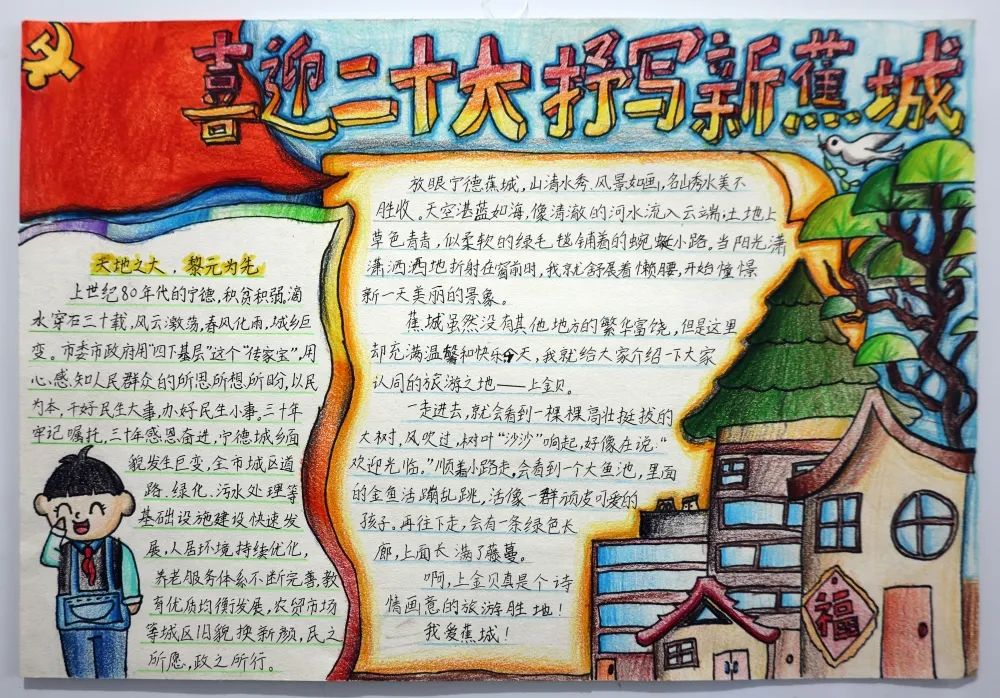 喜迎二十大 抒写新蕉城
天地之大，黎元为先
上世纪80年代的宁德，积贫积弱，滴
水穿石三十载，风云激荡，春风化雨，城乡巨
变。市委市政府用"四下基层"这个"传家宝"，用
心、感、知人民群众的所思所想所盼，以民
为本，干好民生大事，办好民生小事。三十年
牢记嘱托，三十年感恩奋进，宁德城乡面
貌发生巨变，全市城区道
路、绿化、污水处理等
基础设施建设快速发
展，人居环境持续优化，
养老服务体系不断完善，教
育优质均衡发展，农贸市场
等城区旧貌换新颜，民之
所愿，政之所行。
放眼宁德蕉城，山清水秀，风景如画，名山秀水美不
胜收。天空湛蓝如海，像清澈的河水流入云端，土地上
草色青青，似柔软的绿毛毯铺着的蜿蜒小路。当阳光潇
潇洒洒地折射在窗前时，我就舒展着懒腰，开始憧憬
新一天美丽的景象。
蕉城虽然没有其他地方的繁华富饶，但是这里
却充满温馨和快乐今天，我就给大家介绍一下大家
认同的旅游之地——上金贝。
一走进去，就会看到一棵棵高壮挺拔的
大树，风吹过，树叶"沙沙"响起，好像在说："
欢迎光临。"顺着小路走，会看到一个大鱼池，里面
的金鱼活蹦乱跳，活像一群顽皮可爱的
孩子。再往下走，会有一条绿色长
廊，上面长满了藤蔓。
啊，上金贝真是个诗
情画意的旅游胜地！
我爱蕉城！
福